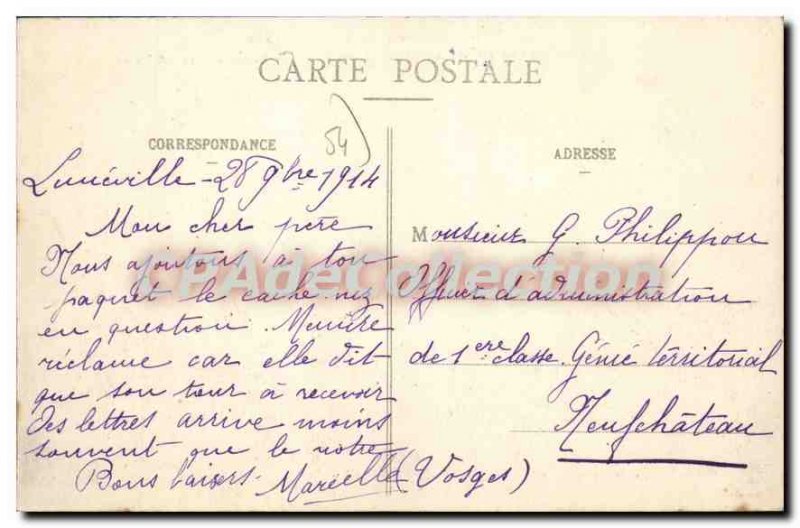 CARTE POSTALE
CORRESPONDANCE
54
Lunéville - 28 9bre 1914
Mon cher père
Nous ajoutons à ton
paquet le cache-nez
en question. 
réclame car elle dit
que son tour à recevoir
des lettres arrive moins
souvent que le notre
Bons baisers. Marcelle
ADRESSE
Monsieur G. Philippon
Officier d'administration
de 1ere classe. Génie térritorial
Neufchâteau
(Vosges)
CPAdeCollection